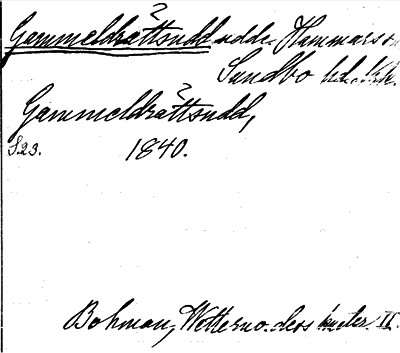 Gammeldrättsudd udde Hammars sn
Sundbo hd
Gammeldrättsudd,
S.23. 1840.
Bohman, Wettern o. dess kuster. II.